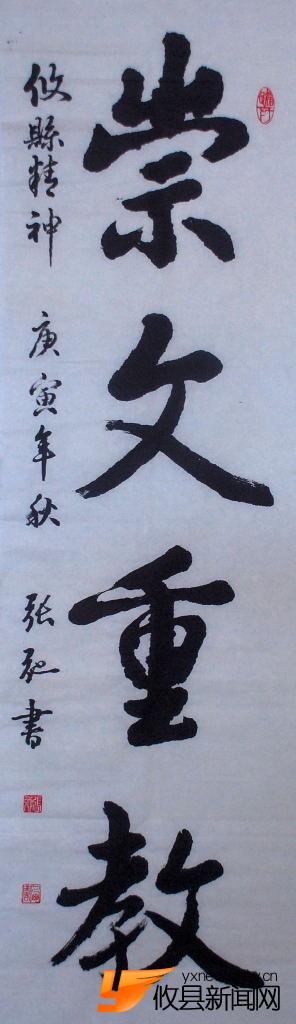 崇文重教
攸縣精神 庚寅年秋 张弛書
攸县新闻网